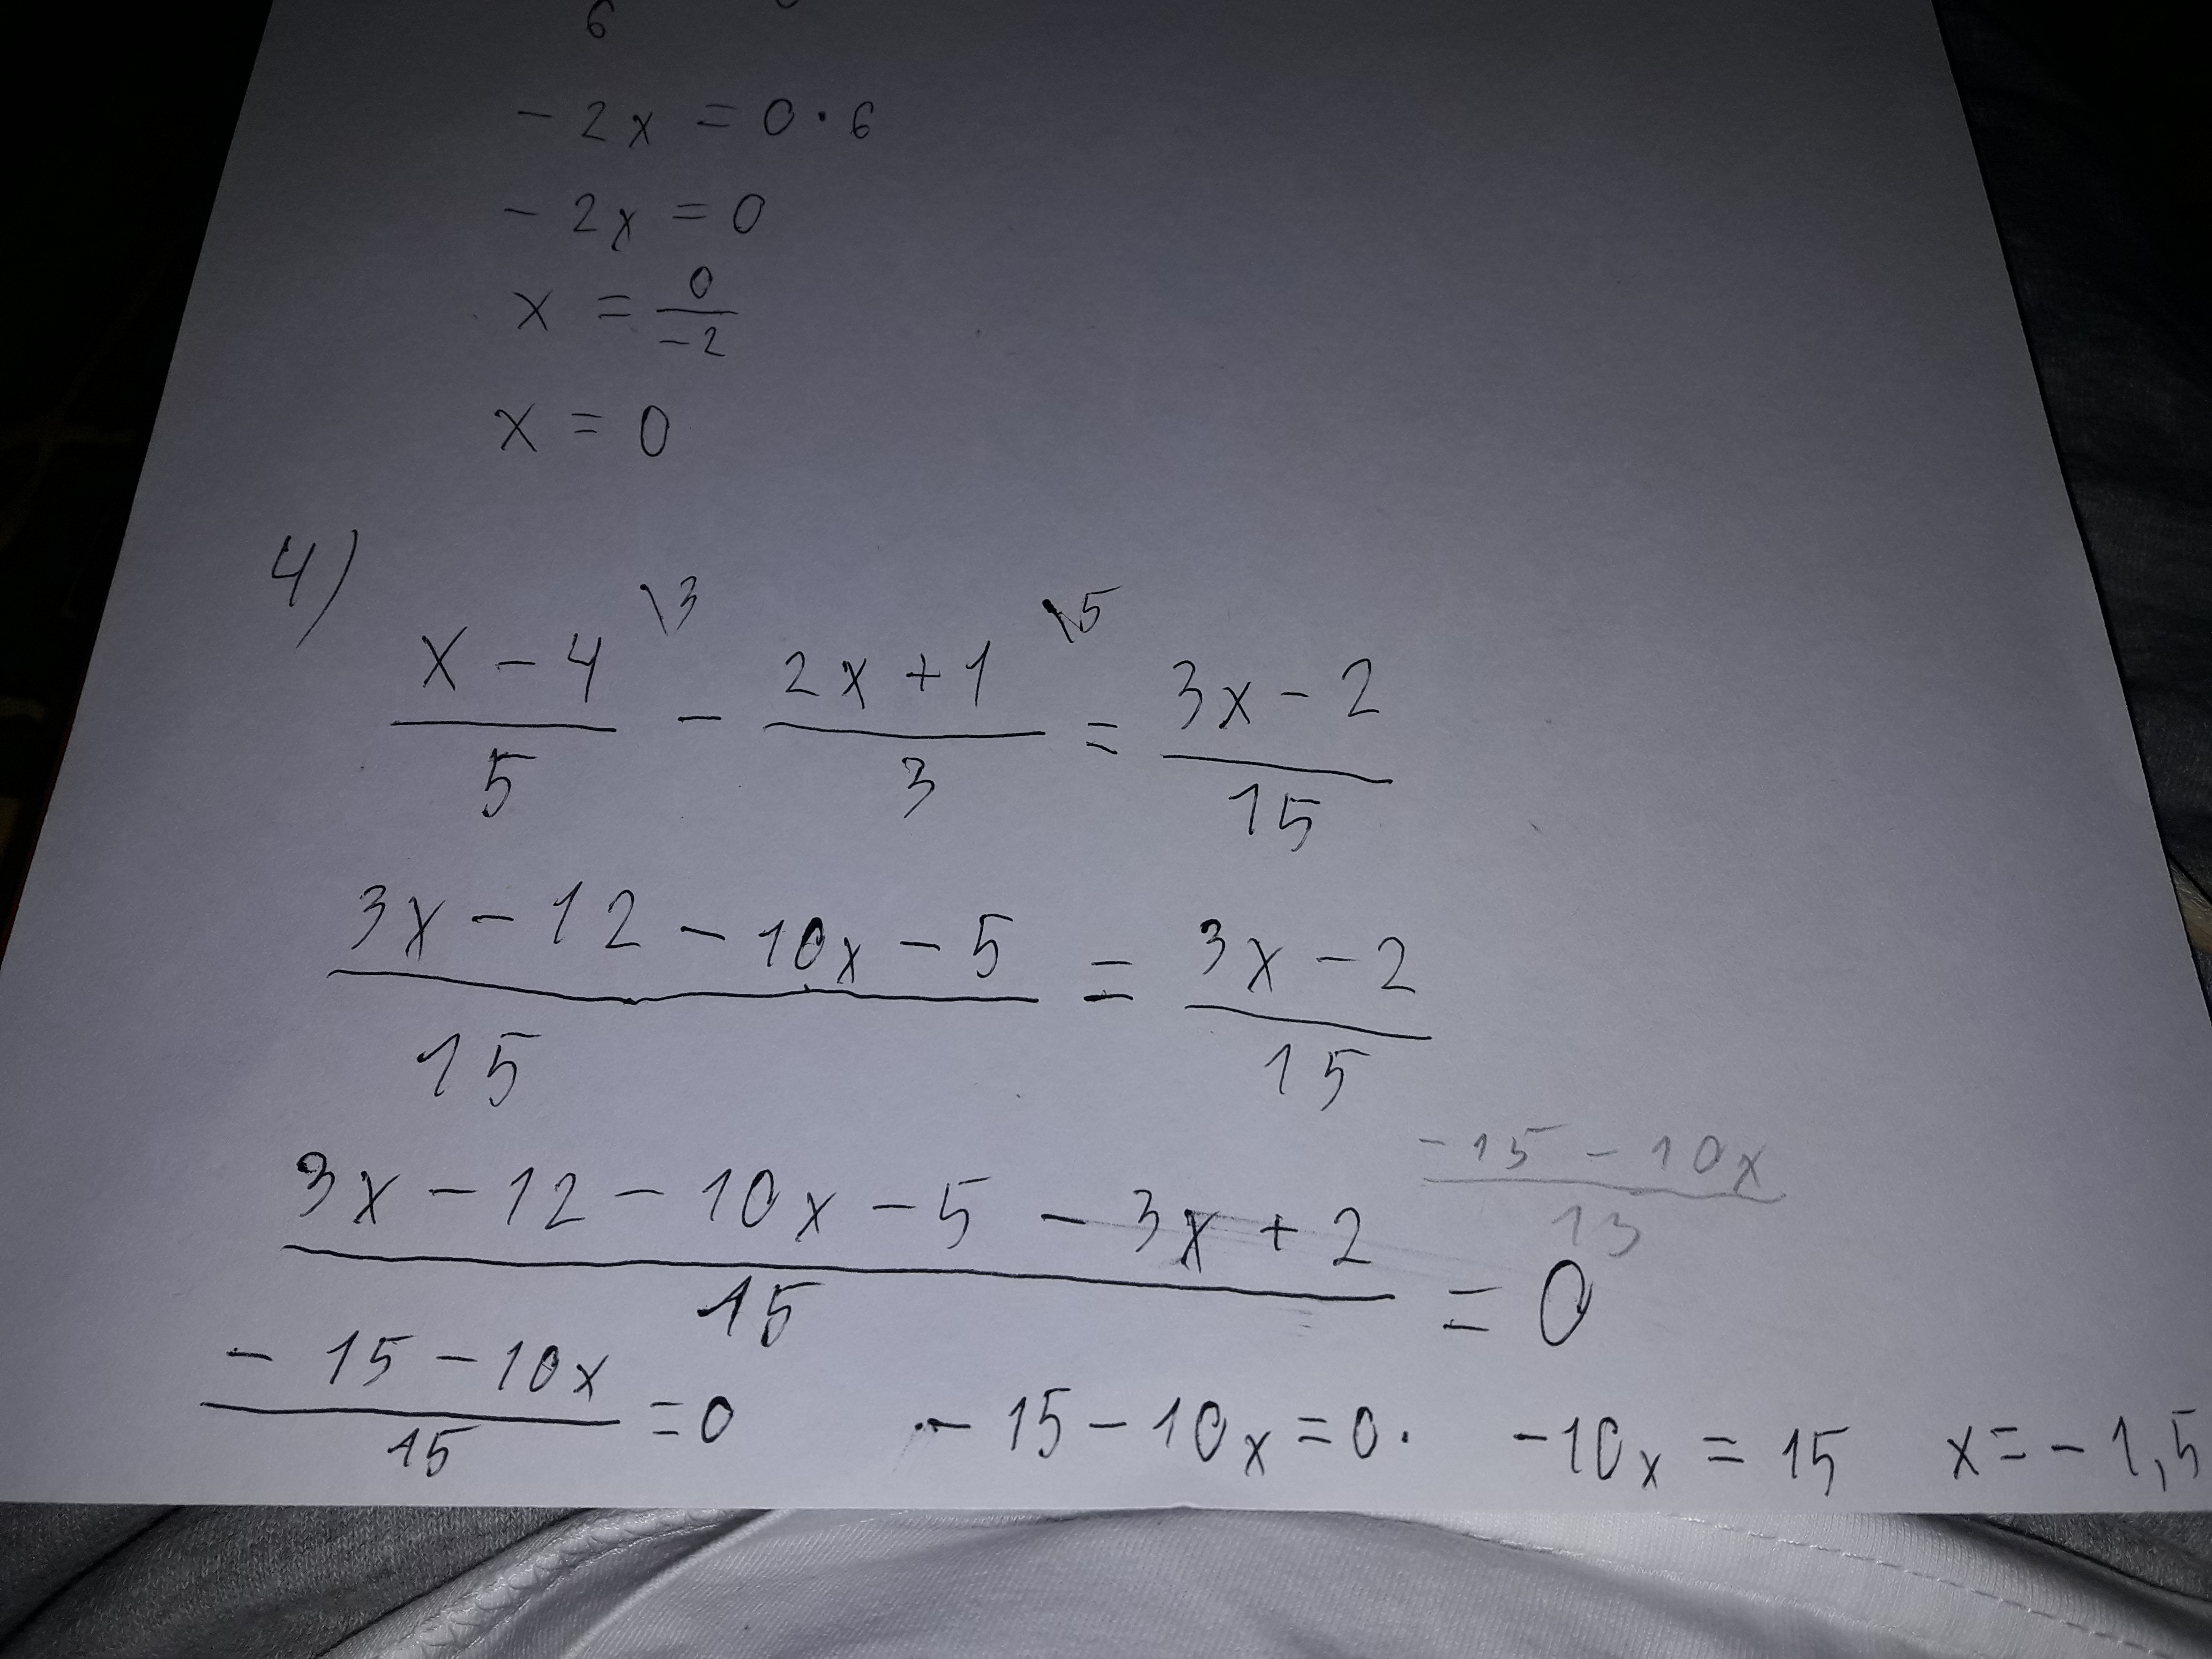 6
- 2x = 0 · 6
- 2x = 0
x = 0/-2
x = 0
4)
(x - 4)/5 \3 - (2x + 1)/3 \5 = (3x - 2)/15
(3x - 12 - 10x - 5)/15 = (3x - 2)/15
(-15 - 10x)/15
(3x - 12 - 10x - 5 - 3x + 2)/15 = 0
(- 15 - 10x)/15 = 0    - 15 - 10x = 0 ·    - 10x = 15    x = - 1,5